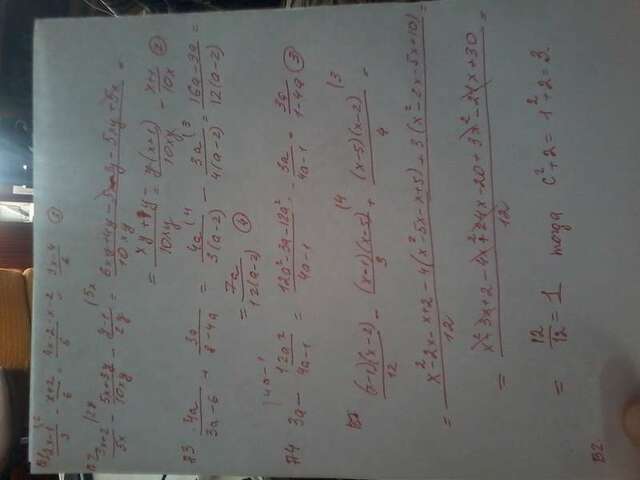 A1 (2x-1)/3 |2 - (x+2)/6 = (4x-2-x-2)/6 = (3x-4)/6 ①
A2 (3x+2)/5x |2y - (5x+3y)/10xy - (y-1)/2y |5x = (6xy+4y-5x-3y-5xy+5x)/10xy =
= (xy+y)/10xy = y(x+1)/10xy = (x+1)/10x ②
A3 4a/(3a-6) + 3a/(8-4a) = 4a/3(a-2) |4 - 3a/4(a-2) |3 = (16a-9a)/12(a-2) =
= 7a/12(a-2) ④
A4 3a |4a-1 - 12a²/(4a-1) = (12a²-3a-12a²)/(4a-1) = -3a/(4a-1) = 3a/(1-4a) ③
(x-1)(x-2)/12 - (x-1)(x-5)/3 |4 + (x-5)(x-2)/4 |3 =
= (x²-2x-x+2-4(x²-5x-x+5)+3(x²-2x-5x+10))/12 =
= (x²-3x+2-4x²+24x-20+3x²-21x+30)/12 =
= 12/12 = 1 тогда c²+2 = 1²+2 = 3.
B2